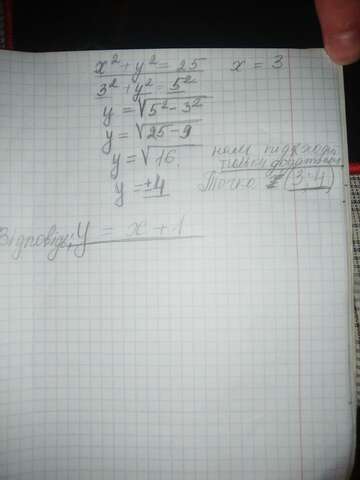 x² + y² = 25 x = 3
3² + y² = 5²
y = √5² - 3²
y = √25 - 9
y = √16. нам підходить
тільки додатнє
y = ±4 Точка (3; 4)
Відповідь: y = x + 1